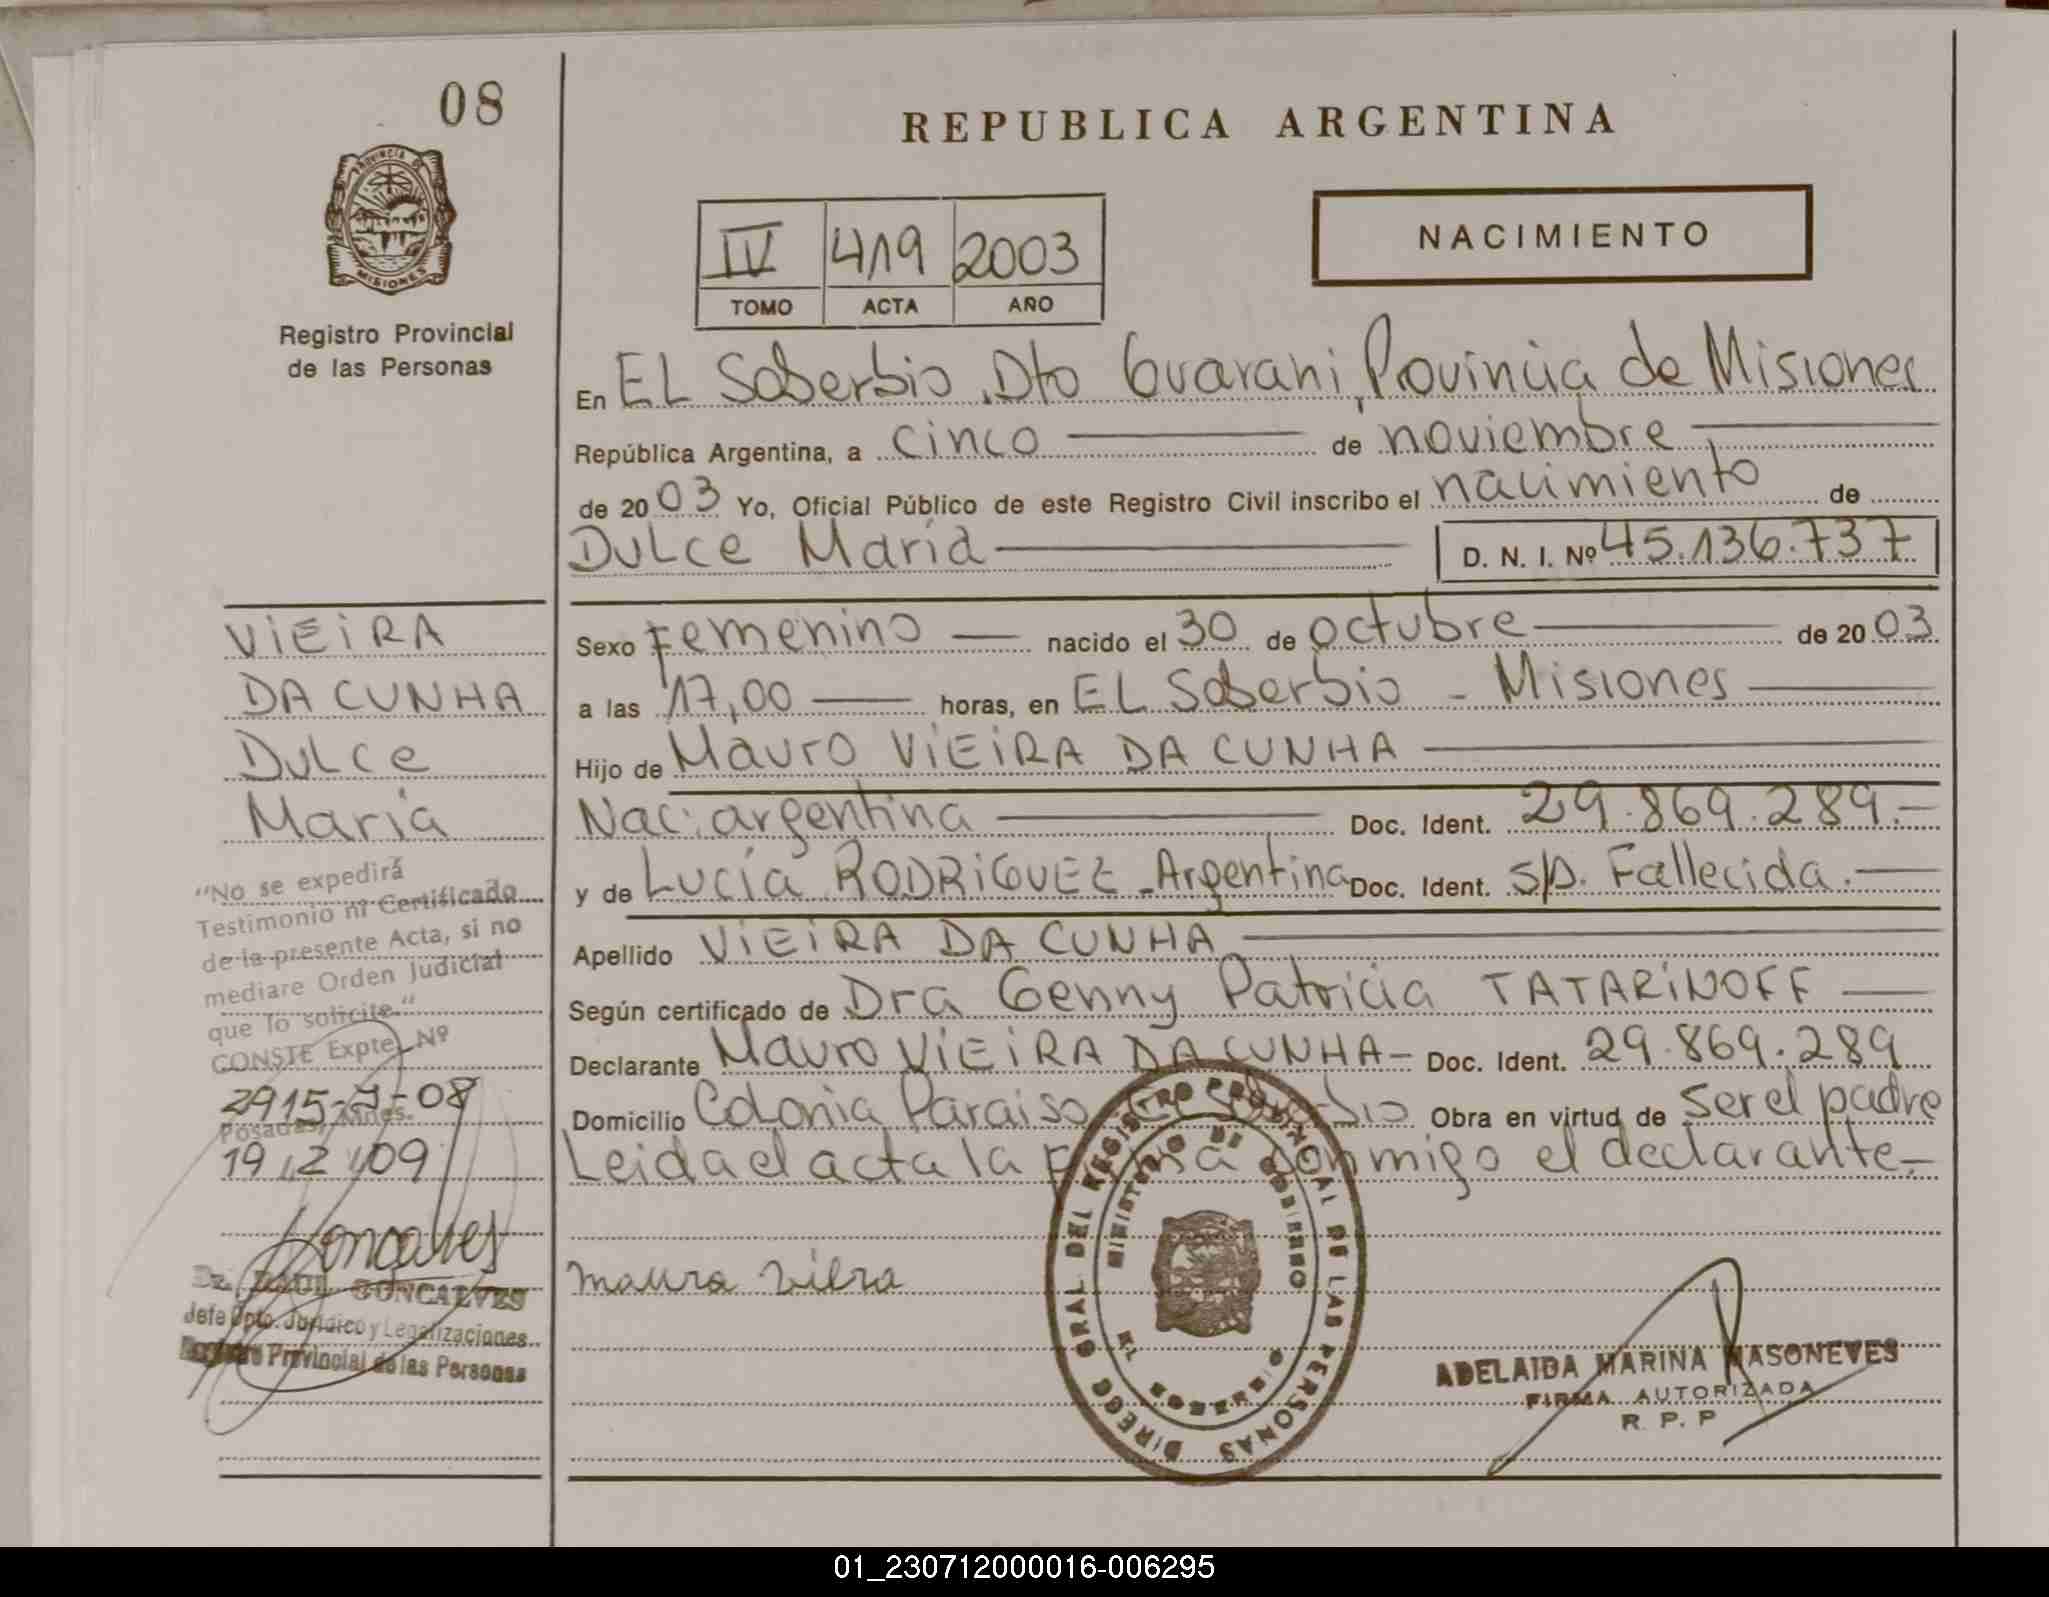 08
PROVINCIA DE
MISIONES
Registro Provincial
de las Personas
REPUBLICA ARGENTINA
IV 419 2003
TOMO ACTA AÑO
NACIMIENTO
En EL Soberbio, Dto Guaraní, Provincia de Misiones
República Argentina, a cinco de noviembre
de 2003 Yo, Oficial Público de este Registro Civil inscribo el nacimiento de
Dulce María D. N. I. Nº 45.136.737
Sexo Femenino nacido el 30 de octubre de 2003
a las 17,00 horas, en EL Soberbio - Misiones
Hijo de Mauro VIEIRA DA CUNHA
Nac: argentina Doc. Ident. 29.869.289.-
y de Lucía RODRIGUEZ - Argentina Doc. Ident. S/D. Fallecida.
Apellido VIEIRA DA CUNHA
Según certificado de Dra Genny Patricia TATARINOFF
Declarante Mauro VIEIRA DA CUNHA - Doc. Ident. 29.869.289
Domicilio Colonia Paraiso Obra en virtud de ser el padre
Leida el acta la conmigo el declarante.-
VIEIRA
DA CUNHA
Dulce
María
"No se expedirá
Testimonio ni Certificado
de la presente Acta, si no
mediare Orden Judicial
que lo solicite."
CONSTE Expte. Nº
2915-J-08
Posadas, Mnes.
19 12 09
Goncalves
Dr. RAUL GONCALVES
Jefe Dpto. Jurídico y Legalizaciones
Registro Provincial de las Personas
DIRECC GRAL DEL REGISTRO PROVINCIAL DE LAS PERSONAS
MINISTERIO DE GOBIERNO
EL SOBERBIO
ADELAIDA MARINA MASONEVES
FIRMA AUTORIZADA
R. P. P
01_230712000016-006295